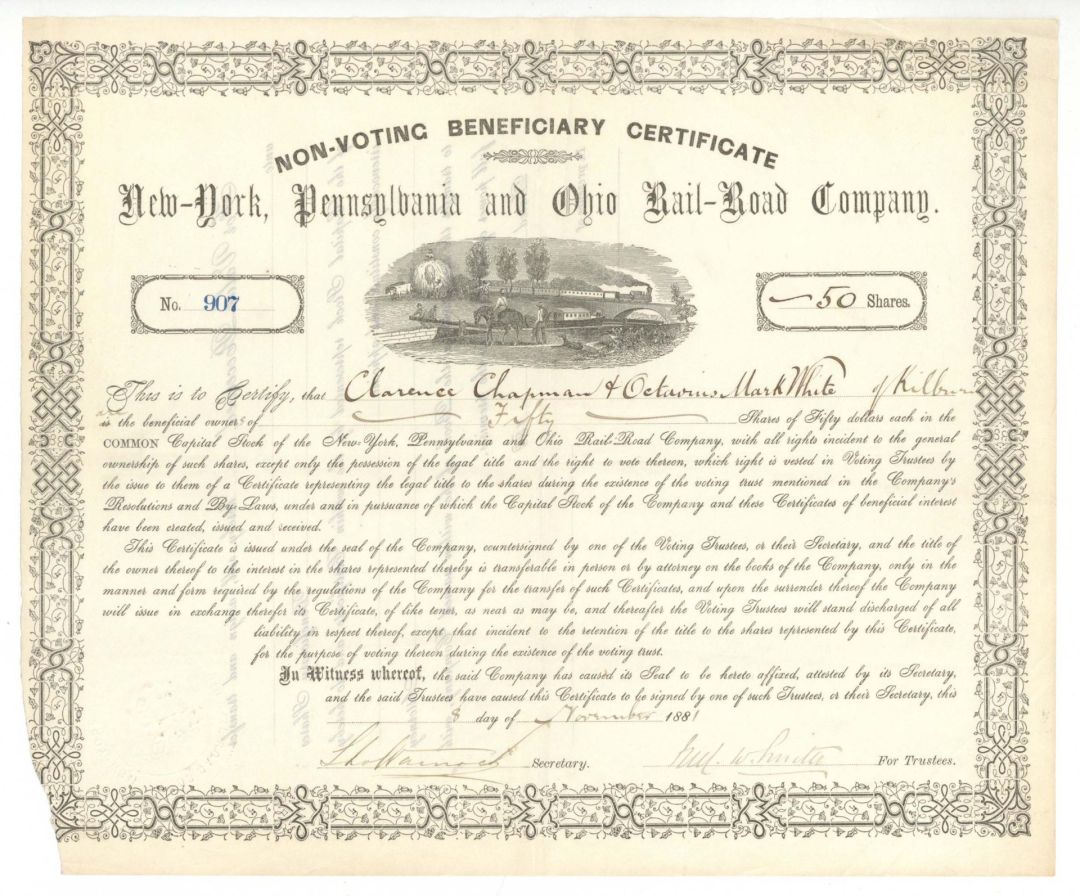 NON-VOTING BENEFICIARY CERTIFICATE
New-York, Pennsylvania and Ohio Rail-Road Company.
No. 907
50 Shares.
This is to Certify, that Clarence Chapman & Octavius Mark White of Kilburn
are
is the beneficial owners of Fifty Shares of Fifty dollars each in the
COMMON Capital Stock of the New-York, Pennsylvania and Ohio Rail-Road Company, with all rights incident to the general
ownership of such shares, except only the possession of the legal title and the right to vote thereon, which right is vested in Voting Trustees by
the issue to them of a Certificate representing the legal title to the shares during the existence of the voting trust mentioned in the Company's
Resolutions and By-Laws, under and in pursuance of which the Capital Stock of the Company and these Certificates of beneficial interest
have been created, issued and received.
This Certificate is issued under the seal of the Company, countersigned by one of the Voting Trustees, or their Secretary, and the title of
the owner thereof to the interest in the shares represented thereby is transferable in person or by attorney on the books of the Company, only in the
manner and form required by the regulations of the Company for the transfer of such Certificates, and upon the surrender thereof the Company
will issue in exchange therefor its Certificate, of like tenor, as near as may be, and thereafter the Voting Trustees will stand discharged of all
liability in respect thereof, except that incident to the retention of the title to the shares represented by this Certificate,
for the purpose of voting thereon during the existence of the voting trust.
In Witness whereof, the said Company has caused its Seal to be hereto affixed, attested by its Secretary,
and the said Trustees have caused this Certificate to be signed by one of such Trustees, or their Secretary, this
8 day of November 1881
Secretary.
Smith For Trustees.